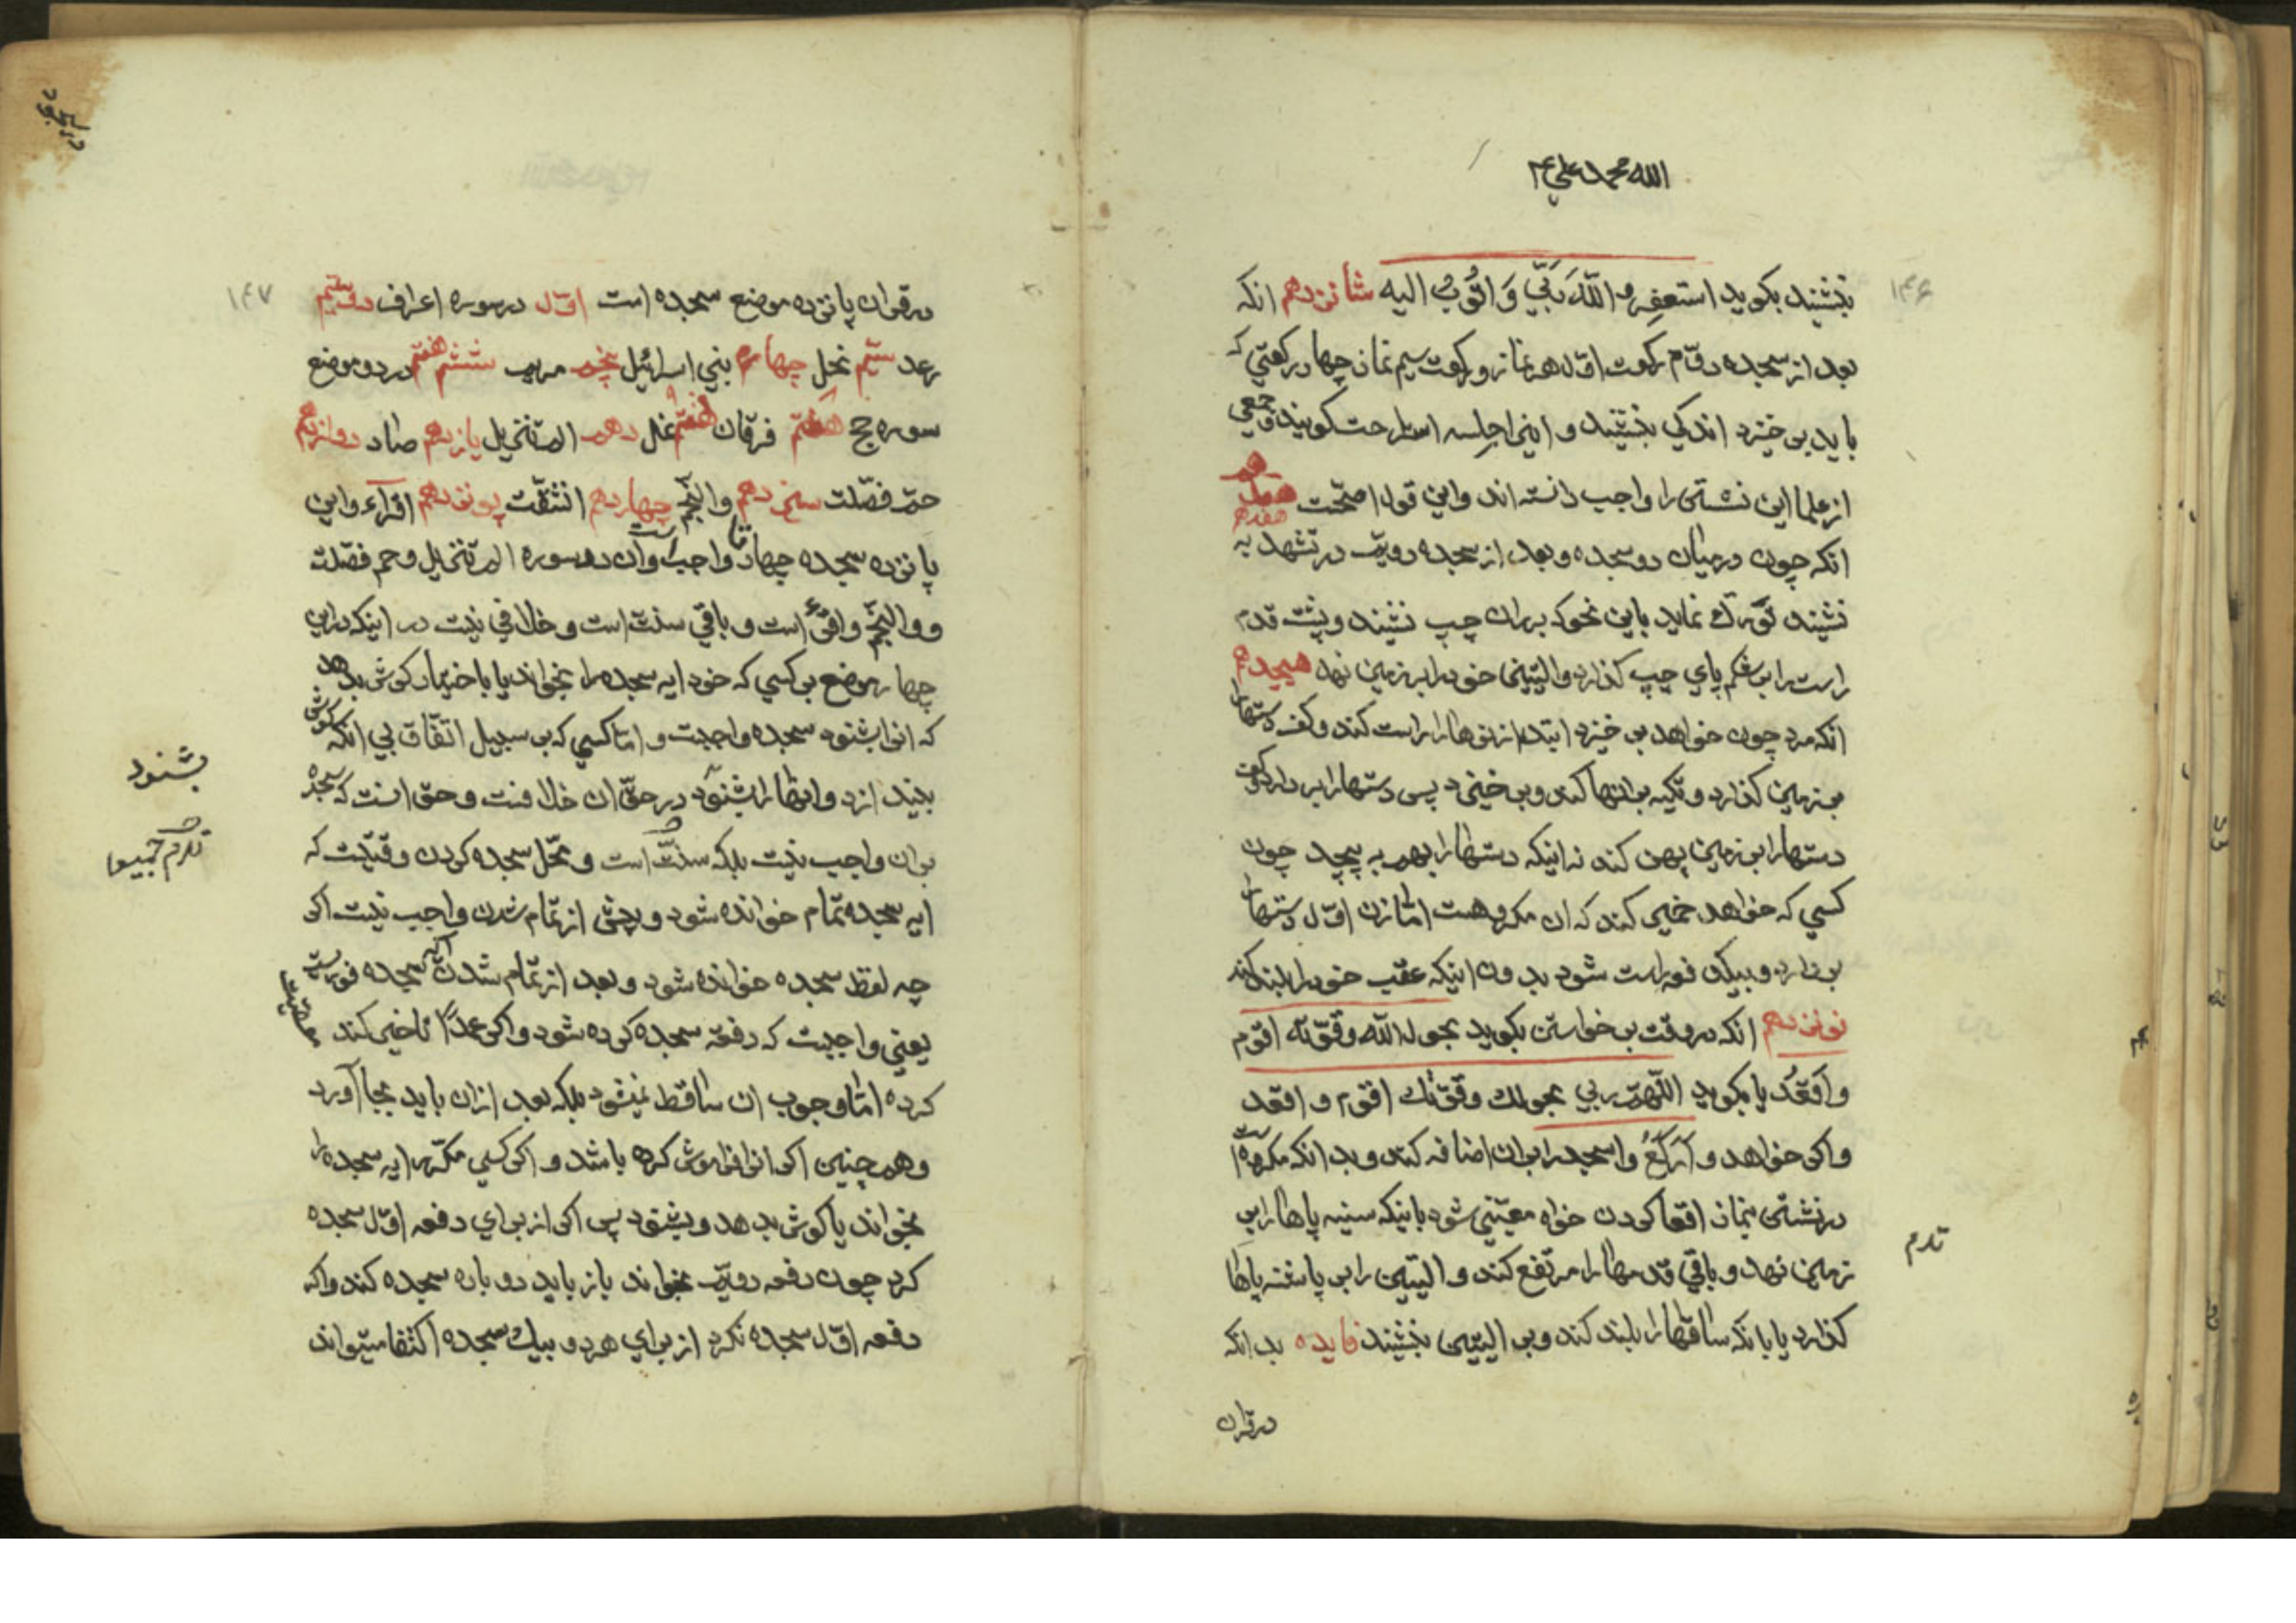 الله محمد علی
۱۴۶
بنشیند بکوید استغفر الله ربّی وَ اتُوبُ الیه شانزدهم انکه
بعد از سجده دویّم رکعت اوّل هر نماز و رکعت سیم نماز چهار رکعتی که
باید بر خیزد اندکی بنشیند و اینرا جلسه استراحت کویند و جمعی
از علما این نشستن را واجب دانسته اند و این قول اصحّست هفدهم
انکه چون در میان دو سجده و بعد از سجده دویّم در تشهد به
نشیند تورّک نماید باین نحو که بر ران چپ نشیند و پشت قدم
راست را بر شکم پای چپ کذارد و الیتین خود را بر زمین نهد هیجدهم
انکه مرد چون خواهد بر خیزد ابتدا زانوها را راست کند و کف دستها را
بر زمین کذارد و تکیه بر انها کند و بر خیزد پس دستها را بر دارد و
دستها را بر زمین پهن کند نه اینکه دستها را بهم به پیچد چون
کسی که خواهد خمیر کند که ان مکروهست امّا زن اوّل دستها را
بر دارد و بیکدفعه راست شود بدون اینکه عقب خود را بلند کند
نوزدهم انکه در وقت بر خواستن بکوید بحول الله وقوّته اقوم
وَاَقعُد یا بکوید اللّهمّ ربی بحولك وقوّتك اقوم و اقعد
واکر خواهد و اَرکَعُ واسجد را بر ان اضافه کند و بدانکه مکروه است
در نشستن نماز اقعا کردن خواه معنیش شود باینکه سینه پاها را بر
زمین نهد و باقی قدمها را مرتفع کند و الیتین را بر پاشنه پاها
کذارد یا بانکه ساقها را بلند کند و بر الیتین بنشیند فایده بدانکه
ندرم
در قران
۱۴۷
در قران پانزده موضع سجده است اوّل در سوره اعراف دویّم
رعد سیّم نحل چهارم بنی اسرائیل پنجم مریم ششم هفتم در دو موضع
سوره حج هشتم فرقان نمل دهم الم تنزیل یازدهم صاد دوازدهم
حم فصّلت سیزدهم والنّجم چهاردهم انشقّت پانزدهم اقرأ و این
پانزده سجده چهارتا واجب است وان در سوره الم تنزیل وحم فصّلت
و والنّجم واقرأ است و باقی سنت است و خلافی نیست در اینکه در این
چهار موضع بر کسی که خود ایه سجده را بخواند یا باختیار کوش بدهد
که انرا بشنود سجده واجبست و امّا کسی که بر سبیل اتفّاق بی انکه کوش
بیندازد وانها را بشنود در حقّ ان خلافست و حق انست که سجده
بر ان واجب نیست بلکه سنّت است و محّل سجده کردن وقتیست که
ایه سجده تمام خوانده شود و پیش از تمام شدن واجب نیست اکر
چه لفظ سجده خوانده شود و بعد از تمام شدن آیه سجده فوریست
یعنی واجبست که دفعة سجده کرده شود و اکر عمدًا تاخیر کند
کرده امّا وجوب ان ساقط نمیشود بلکه بعد از ان باید بجا آورد
وهمچنین اکر انرا فراموش کرده باشد و اکر کسی مکرّر ایه سجده را
بخواند یا کوش بدهد و بشنود پس اکر از برای دفعه اوّل سجده
کرد چون دفعه دویّم بخواند باز باید دوباره سجده کند واکر
دفعه اوّل سجده نکرد از برای هر دو بیك سجده اکتفا میتواند
بشنود